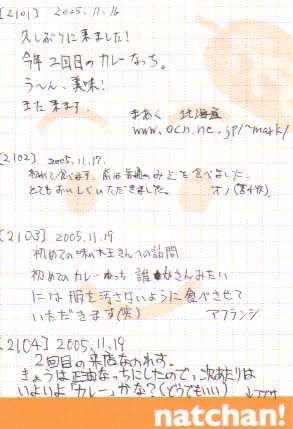 [2101] 2005.11.16
久しぶりに来ました!
今年2回目のカレーなっち。
う〜ん、美味!
また来ます。
まあく 北海道
www.ocn.ne.jp/~mark/
[2102] 2005.11.17.
初めて食べます。 普通のみそを食べました。
とてもおいしくいただきました。
[2103] 2005.11.19
初めての味の大王さんへの訪問
初めてのカレーなっち 誰かさんみたい
には 服を汚さないように食べさせて
いただきます(笑) アフランシ
[2104] 2005.11.19
2回目の来店なのれす。
きょうは正油なっちにしたので、次あたりは
いよいよ「カレー」かな?(どうでもいい)
natchan!